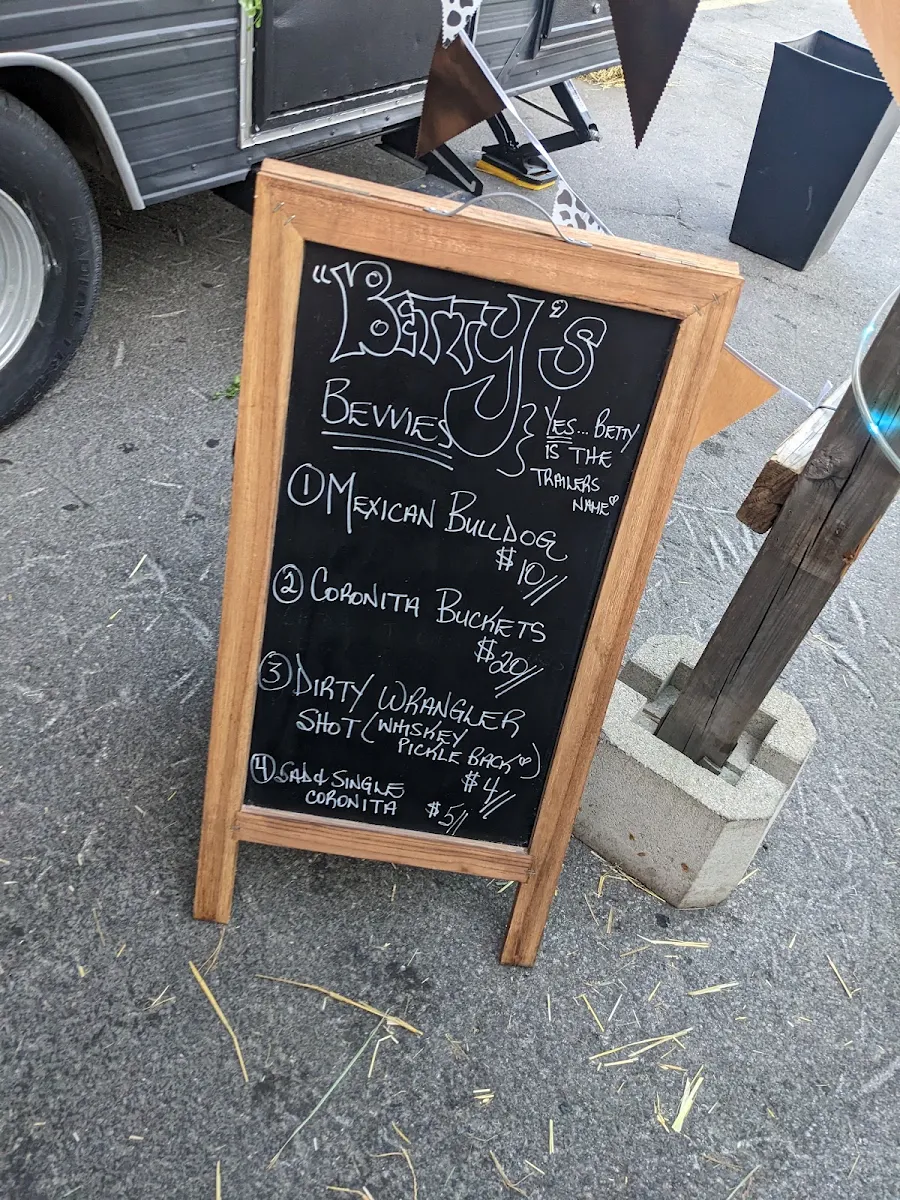 "BETTY'S
BEVVIES
YES... BETTY
IS THE
TRAILERS
NAME♡
① MEXICAN BULLDOG
$10//
② CORONITA BUCKETS
$20//
③ DIRTY WRANGLER
SHOT (WHISKEY
PICKLE BACK♡)
$4//
④ SAD & SINGLE
CORONITA $5//